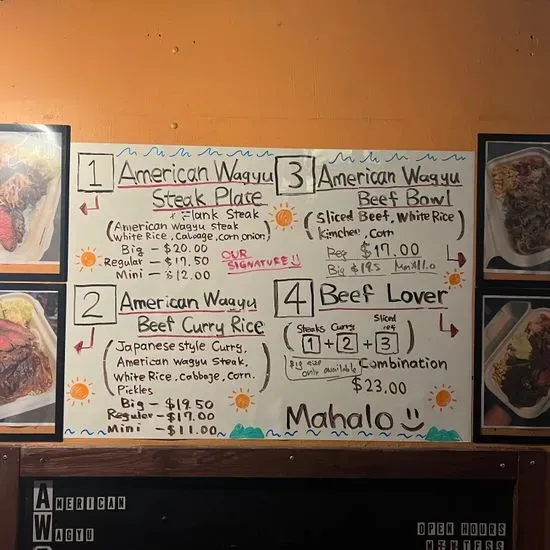 1 American Wagyu
Steak Plate
* Flank Steak
(American wagyu steak
white Rice, Cabbage, corn, onion)
Big - $20.00
Regular - $17.50
Mini - $12.00
OUR
SIGNATURE
2 American Wagyu
Beef Curry Rice
(Japanese style Curry,
American wagyu steak,
white Rice, Cabbage, Corn,
Pickles)
Big - $19.50
Regular - $17.00
Mini - $11.00
3 American Wagyu
Beef Bowl
(Sliced Beef, White Rice
Kimchee, Corn)
Reg $17.00
Big $19.5
4 Beef Lover
Steaks Curry Sliced
(1 + 2 + 3)
Big size
only available
Combination
$23.00
Mahalo
AMERICAN
WAGYU
OPEN HOURS